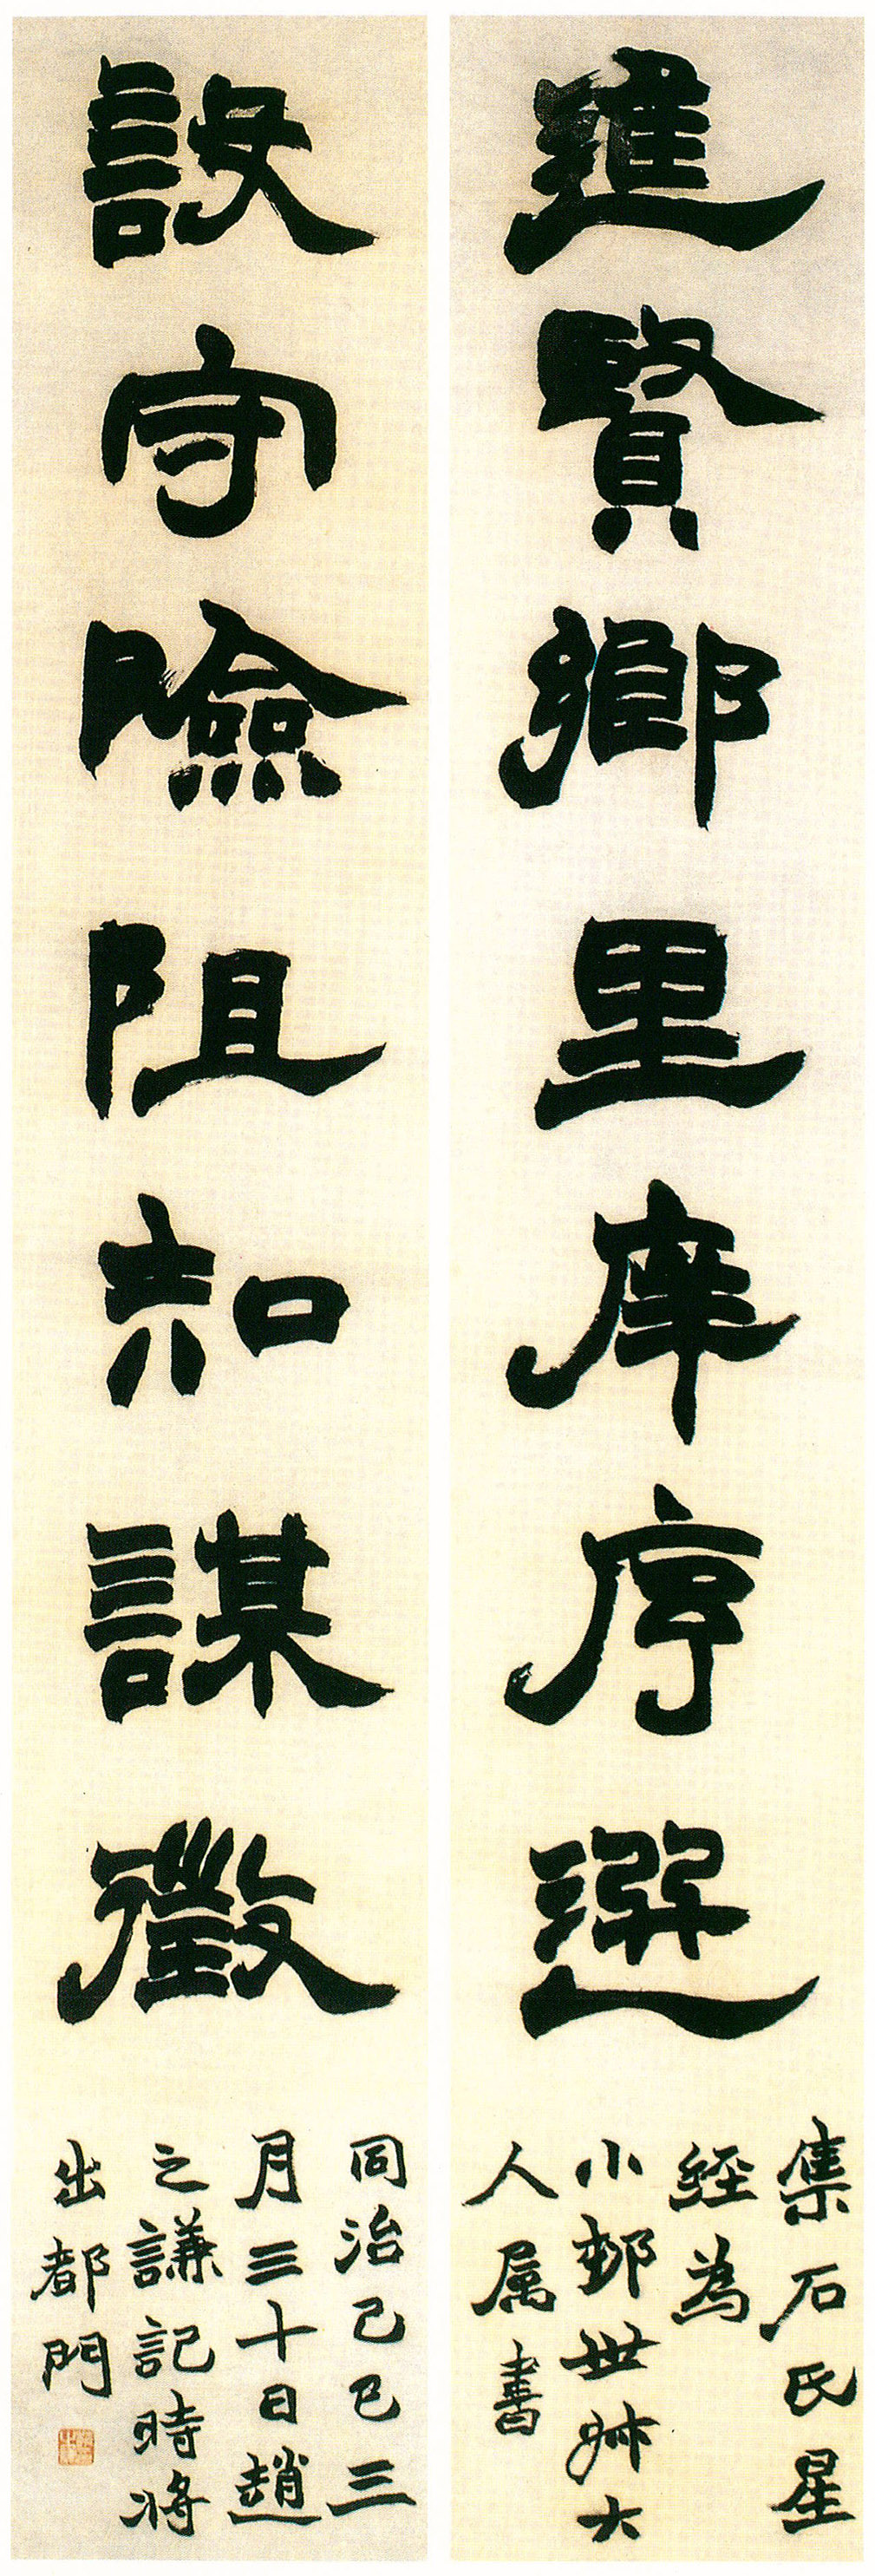 進賢鄉里庠序選
集石氏星
經為
小邨世叔大
人属書
設守險阻知謀徵
同治己巳三
月三十日趙
之謙記時將
出都門